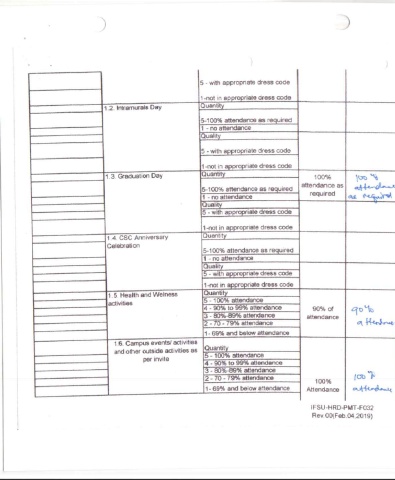 5 - with appropriate dress code
1-not in appropriate dress code
1.2. Intramurals Day
Quantity
5-100% attendance as required
1 - no attendance
Quality
5 - with appropriate dress code
1-not in appropriate dress code
1.3. Graduation Day
Quantity
5-100% attendance as required
1 - no attendance
100%
attendance as
required
100 %
attendance
as required
Quality
5 - with appropriate dress code
1-not in appropriate dress code
1.4. CSC Anniversary
Celebration
Quantity
5-100% attendance as required
1 - no attendance
Quality
5 - with appropriate dress code
1-not in appropriate dress code
1.5 Health and Welness
activities
Quantity
5 - 100% attendance
4 - 90% to 99% attendance
3 - 80%-89% attendance
2 - 70 - 79% attendance
1- 69% and below attendance
90% of
attendance
90%
attendance
1.6. Campus events/ activities
and other outside activities as
per invite
Quantity
5 - 100% attendance
4 - 90% to 99% attendance
3 - 80%-89% attendance
2 - 70 - 79% attendance
1- 69% and below attendance
100%
Attendance
100 %
attendance
IFSU-HRD-PMT-F032
Rev.00(Feb.04,2019)